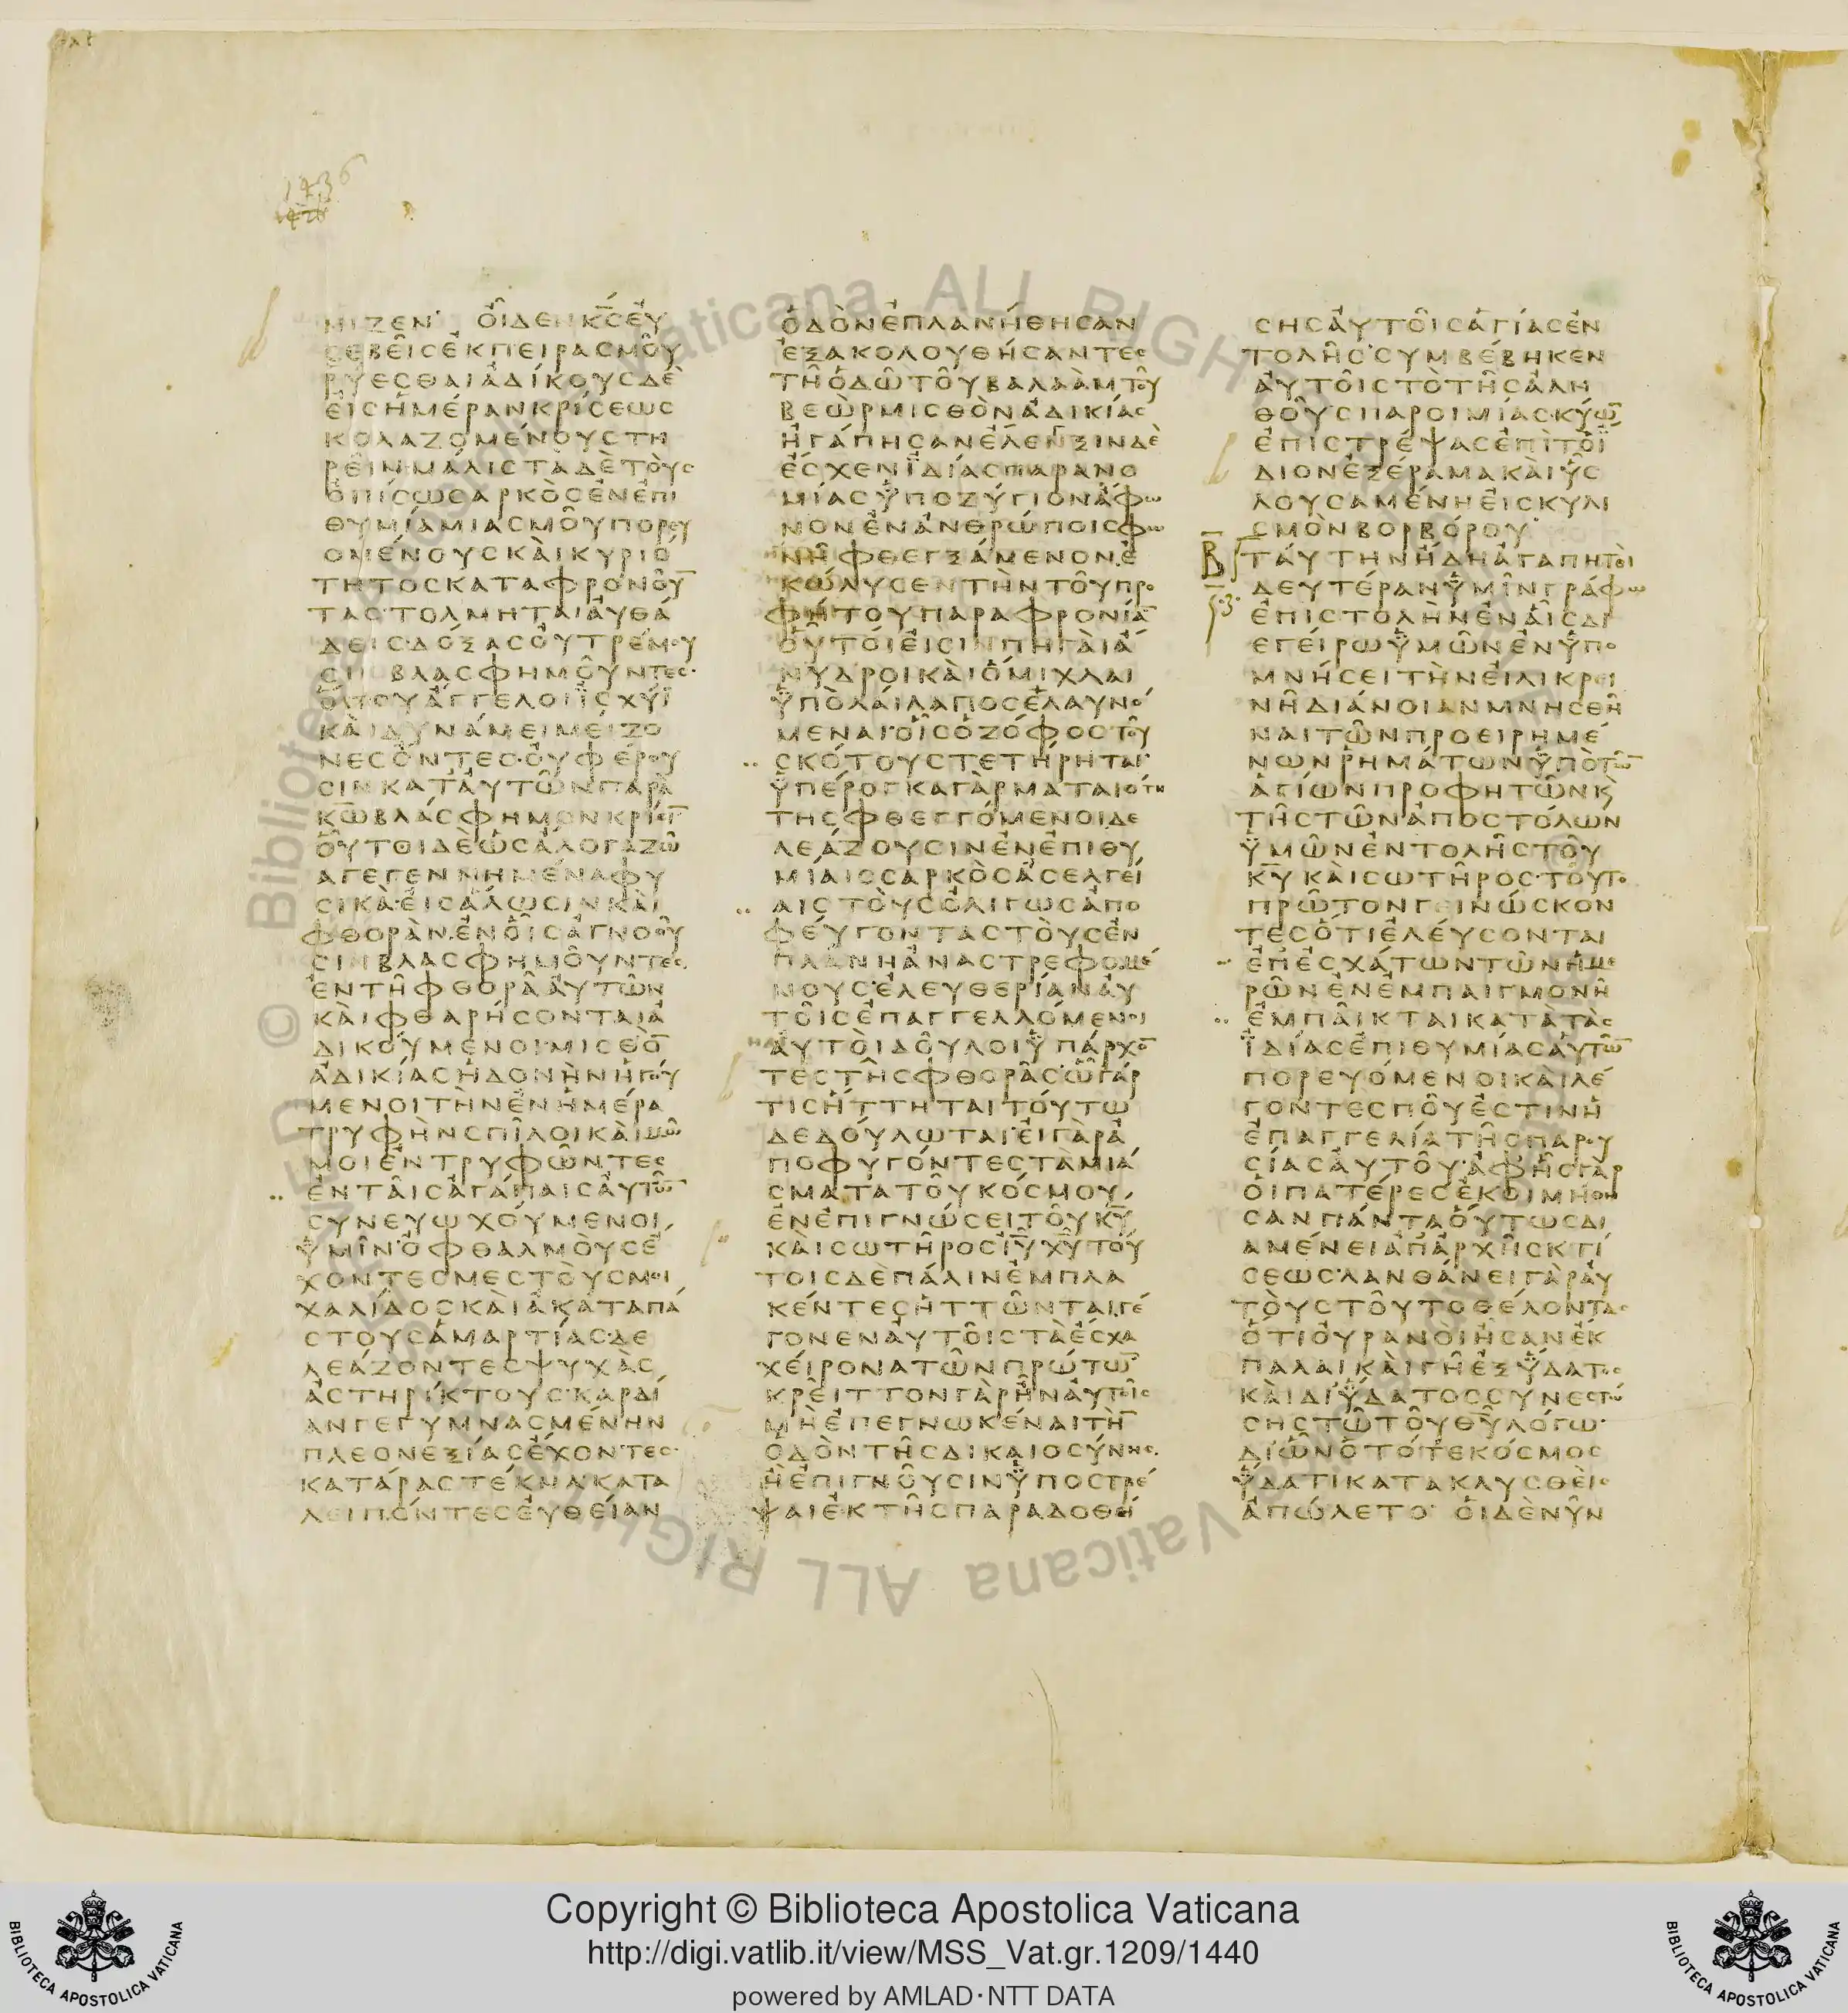 1436
ΜΙΖΕΝ· ΟΙΔΕΝ Κ̅Σ̅ ΕΥ
ΣΕΒΕΙΣ ΕΚ ΠΕΙΡΑΣΜΟΥ
ΡΥΕΣΘΑΙ ΑΔΙΚΟΥΣ ΔΕ
ΕΙΣ ΗΜΕΡΑΝ ΚΡΙΣΕΩΣ
ΚΟΛΑΖΟΜΕΝΟΥΣ ΤΗ
ΡΕΙΝ· ΜΑΛΙΣΤΑ ΔΕ ΤΟΥΣ
ΟΠΙΣΩ ΣΑΡΚΟΣ ΕΝ ΕΠΙ
ΘΥΜΙΑ ΜΙΑΣΜΟΥ ΠΟΡΕΥ
ΟΜΕΝΟΥΣ ΚΑΙ ΚΥΡΙΟ
ΤΗΤΟΣ ΚΑΤΑΦΡΟΝΟΥ̅
ΤΑΣ· ΤΟΛΜΗΤΑΙ ΑΥΘΑ
ΔΕΙΣ· ΔΟΞΑΣ ΟΥ ΤΡΕΜΟΥ
ΣΙΝ ΒΛΑΣΦΗΜΟΥΝΤΕΣ·
ΟΠΟΥ ΑΓΓΕΛΟΙ ΙΣΧΥΪ
ΚΑΙ ΔΥΝΑΜΕΙ ΜΕΙΖΟ
ΝΕΣ ΟΝΤΕΣ· ΟΥ ΦΕΡΟΥ
ΣΙΝ ΚΑΤ ΑΥΤΩΝ ΠΑΡΑ
Κ̅Ω̅ ΒΛΑΣΦΗΜΟΝ ΚΡΙΣΙ̅
ΟΥΤΟΙ ΔΕ ΩΣ ΑΛΟΓΑ ΖΩ
Α ΓΕΓΕΝΝΗΜΕΝΑ ΦΥ
ΣΙΚΑ· ΕΙΣ ΑΛΩΣΙΝ ΚΑΙ
ΦΘΟΡΑΝ· ΕΝ ΟΙΣ ΑΓΝΟΟΥ
ΣΙΝ ΒΛΑΣΦΗΜΟΥΝΤΕΣ.
ΕΝ ΤΗ ΦΘΟΡΑ ΑΥΤΩΝ
ΚΑΙ ΦΘΑΡΗΣΟΝΤΑΙ Α
ΔΙΚΟΥΜΕΝΟΙ· ΜΙΣΘΟ̅
ΑΔΙΚΙΑΣ ΗΔΟΝΗΝ ΗΓΟΥ
ΜΕΝΟΙ ΤΗΝ ΕΝ ΗΜΕΡΑ
ΤΡΥΦΗΝ ΣΠΙΛΟΙ ΚΑΙ ΜΩ
ΜΟΙ ΕΝΤΡΥΦΩΝΤΕΣ
ΕΝ ΤΑΙΣ ΑΓΑΠΑΙΣ ΑΥΤΩ̅
ΣΥΝΕΥΩΧΟΥΜΕΝΟΙ
ΥΜΙΝ· ΟΦΘΑΛΜΟΥΣ Ε
ΧΟΝΤΕΣ ΜΕΣΤΟΥΣ ΜΟΙ
ΧΑΛΙΔΟΣ ΚΑΙ ΑΚΑΤΑΠΑ
ΣΤΟΥΣ ΑΜΑΡΤΙΑΣ· ΔΕ
ΛΕΑΖΟΝΤΕΣ ΨΥΧΑΣ
ΑΣΤΗΡΙΚΤΟΥΣ· ΚΑΡΔΙ
ΑΝ ΓΕΓΥΜΝΑΣΜΕΝΗΝ
ΠΛΕΟΝΕΞΙΑΣ ΕΧΟΝΤΕΣ·
ΚΑΤΑΡΑΣ ΤΕΚΝΑ· ΚΑΤΑ
ΛΕΙΠΟΝΤΕΣ ΕΥΘΕΙΑΝ
ΟΔΟΝ ΕΠΛΑΝΗΘΗΣΑΝ
ΕΞΑΚΟΛΟΥΘΗΣΑΝΤΕΣ
ΤΗ ΟΔΩ ΤΟΥ ΒΑΛΑΑΜ ΤΟΥ
ΒΕΩΡ ΜΙΣΘΟΝ ΑΔΙΚΙΑΣ
ΗΓΑΠΗΣΑΝ ΕΛΕΓΞΙΝ ΔΕ
ΕΣΧΕΝ ΙΔΙΑΣ ΠΑΡΑΝΟ
ΜΙΑΣ ΥΠΟΖΥΓΙΟΝ ΑΦΩ
ΝΟΝ ΕΝ ΑΝΘΡΩΠΟΙΣ ΦΩ
ΝΗ ΦΘΕΓΞΑΜΕΝΟΝ Ε
ΚΩΛΥΣΕΝ ΤΗΝ ΤΟΥ ΠΡΟ
ΦΗΤΟΥ ΠΑΡΑΦΡΟΝΙΑ̅
ΟΥΤΟΙ ΕΙΣΙΝ ΠΗΓΑΙ Α
ΝΥΔΡΟΙ ΚΑΙ ΟΜΙΧΛΑΙ
ΥΠΟ ΛΑΙΛΑΠΟΣ ΕΛΑΥΝΟ
ΜΕΝΑΙ· ΟΙΣ Ο ΖΟΦΟΣ ΤΟΥ
ΣΚΟΤΟΥΣ ΤΕΤΗΡΗΤΑΙ·
ΥΠΕΡΟΓΚΑ ΓΑΡ ΜΑΤΑΙΟΤΗ
ΤΗΣ ΦΘΕΓΓΟΜΕΝΟΙ ΔΕ
ΛΕΑΖΟΥΣΙΝ ΕΝ ΕΠΙΘΥ
ΜΙΑΙΣ ΣΑΡΚΟΣ ΑΣΕΛΓΕΙ
ΑΙΣ ΤΟΥΣ ΟΛΙΓΩΣ ΑΠΟ
ΦΕΥΓΟΝΤΑΣ ΤΟΥΣ ΕΝ
ΠΛΑΝΗ ΑΝΑΣΤΡΕΦΟΜΕ
ΝΟΥΣ· ΕΛΕΥΘΕΡΙΑΝ ΑΥ
ΤΟΙΣ ΕΠΑΓΓΕΛΛΟΜΕΝΟΙ
ΑΥΤΟΙ ΔΟΥΛΟΙ ΥΠΑΡΧΟ̅
ΤΕΣ ΤΗΣ ΦΘΟΡΑΣ· Ω ΓΑΡ
ΤΙΣ ΗΤΤΗΤΑΙ ΤΟΥΤΩ
ΔΕΔΟΥΛΩΤΑΙ· ΕΙ ΓΑΡ Α
ΠΟΦΥΓΟΝΤΕΣ ΤΑ ΜΙΑ
ΣΜΑΤΑ ΤΟΥ ΚΟΣΜΟΥ
ΕΝ ΕΠΙΓΝΩΣΕΙ ΤΟΥ Κ̅Υ̅
ΚΑΙ ΣΩΤΗΡΟΣ Ι̅Υ̅ Χ̅Υ̅ ΤΟΥ
ΤΟΙΣ ΔΕ ΠΑΛΙΝ ΕΜΠΛΑ
ΚΕΝΤΕΣ ΗΤΤΩΝΤΑΙ, ΓΕ
ΓΟΝΕΝ ΑΥΤΟΙΣ ΤΑ ΕΣΧΑ
ΧΕΙΡΟΝΑ ΤΩΝ ΠΡΩΤΩ̅
ΚΡΕΙΤΤΟΝ ΓΑΡ ΗΝ ΑΥΤΟΙΣ
ΜΗ ΕΠΕΓΝΩΚΕΝΑΙ ΤΗ̅
ΟΔΟΝ ΤΗΣ ΔΙΚΑΙΟΣΥΝΗΣ.
Η ΕΠΙΓΝΟΥΣΙΝ ΥΠΟΣΤΡΕ
ΨΑΙ ΕΚ ΤΗΣ ΠΑΡΑΔΟΘΕΙ
ΣΗΣ ΑΥΤΟΙΣ ΑΓΙΑΣ ΕΝ
ΤΟΛΗΣ· ΣΥΜΒΕΒΗΚΕΝ
ΑΥΤΟΙΣ ΤΟ ΤΗΣ ΑΛΗ
ΘΟΥΣ ΠΑΡΟΙΜΙΑΣ· ΚΥΩ̅
ΕΠΙΣΤΡΕΨΑΣ ΕΠΙ ΤΟ Ϊ
ΔΙΟΝ ΕΞΕΡΑΜΑ ΚΑΙ ΥΣ
ΛΟΥΣΑΜΕΝΗ ΕΙΣ ΚΥΛΙ
ΣΜΟΝ ΒΟΡΒΟΡΟΥ·
Β ΤΑΥΤΗΝ ΗΔΗ ΑΓΑΠΗΤΟΙ
ΔΕΥΤΕΡΑΝ ΥΜΙΝ ΓΡΑΦΩ
ΕΠΙΣΤΟΛΗΝ ΕΝ ΑΙΣ ΔΙ
ΕΓΕΙΡΩ ΥΜΩΝ ΕΝ ΥΠΟ
ΜΝΗΣΕΙ ΤΗΝ ΕΙΛΙΚΡΙ
ΝΗ ΔΙΑΝΟΙΑΝ ΜΝΗΣΘΗ
ΝΑΙ ΤΩΝ ΠΡΟΕΙΡΗΜΕ
ΝΩΝ ΡΗΜΑΤΩΝ ΥΠΟ ΤΩ̅
ΑΓΙΩΝ ΠΡΟΦΗΤΩΝ Κ
ΤΗΣ ΤΩΝ ΑΠΟΣΤΟΛΩΝ
ΥΜΩΝ ΕΝΤΟΛΗΣ ΤΟΥ
Κ̅Υ̅ ΚΑΙ ΣΩΤΗΡΟΣ· ΤΟΥΤΟ
ΠΡΩΤΟΝ ΓΕΙΝΩΣΚΟΝ
ΤΕΣ ΟΤΙ ΕΛΕΥΣΟΝΤΑΙ
ΕΠ ΕΣΧΑΤΩΝ ΤΩΝ ΗΜΕ
ΡΩΝ ΕΝ ΕΜΠΑΙΓΜΟΝΗ
ΕΜΠΑΙΚΤΑΙ ΚΑΤΑ ΤΑΣ
ΙΔΙΑΣ ΕΠΙΘΥΜΙΑΣ ΑΥΤΩ̅
ΠΟΡΕΥΟΜΕΝΟΙ ΚΑΙ ΛΕ
ΓΟΝΤΕΣ ΠΟΥ ΕΣΤΙΝ Η
ΕΠΑΓΓΕΛΙΑ ΤΗΣ ΠΑΡΟΥ
ΣΙΑΣ ΑΥΤΟΥ· ΑΦ ΗΣ ΓΑΡ
ΟΙ ΠΑΤΕΡΕΣ ΕΚΟΙΜΗΘΗ
ΣΑΝ ΠΑΝΤΑ ΟΥΤΩΣ ΔΙ
ΑΜΕΝΕΙ ΑΠ ΑΡΧΗΣ ΚΤΙ
ΣΕΩΣ· ΛΑΝΘΑΝΕΙ ΓΑΡ ΑΥ
ΤΟΥΣ ΤΟΥΤΟ ΘΕΛΟΝΤΑΣ
ΟΤΙ ΟΥΡΑΝΟΙ ΗΣΑΝ ΕΚ
ΠΑΛΑΙ ΚΑΙ ΓΗ ΕΞ ΥΔΑΤΟΣ
ΚΑΙ ΔΙ ΥΔΑΤΟΣ ΣΥΝΕΣΤΩ
ΣΗΣ ΤΩ ΤΟΥ Θ̅Υ̅ ΛΟΓΩ·
ΔΙ ΩΝ Ο ΤΟΤΕ ΚΟΣΜΟΣ
ΥΔΑΤΙ ΚΑΤΑΚΛΥΣΘΕΙΣ
ΑΠΩΛΕΤΟ· ΟΙ ΔΕ ΝΥΝ
© Biblioteca Apostolica Vaticana ALL RIGHTS RESERVED
Copyright © Biblioteca Apostolica Vaticana
http://digi.vatlib.it/view/MSS_Vat.gr.1209/1440
powered by AMLAD·NTT DATA
BIBLIOTECA APOSTOLICA VATICANA
BIBLIOTECA APOSTOLICA VATICANA